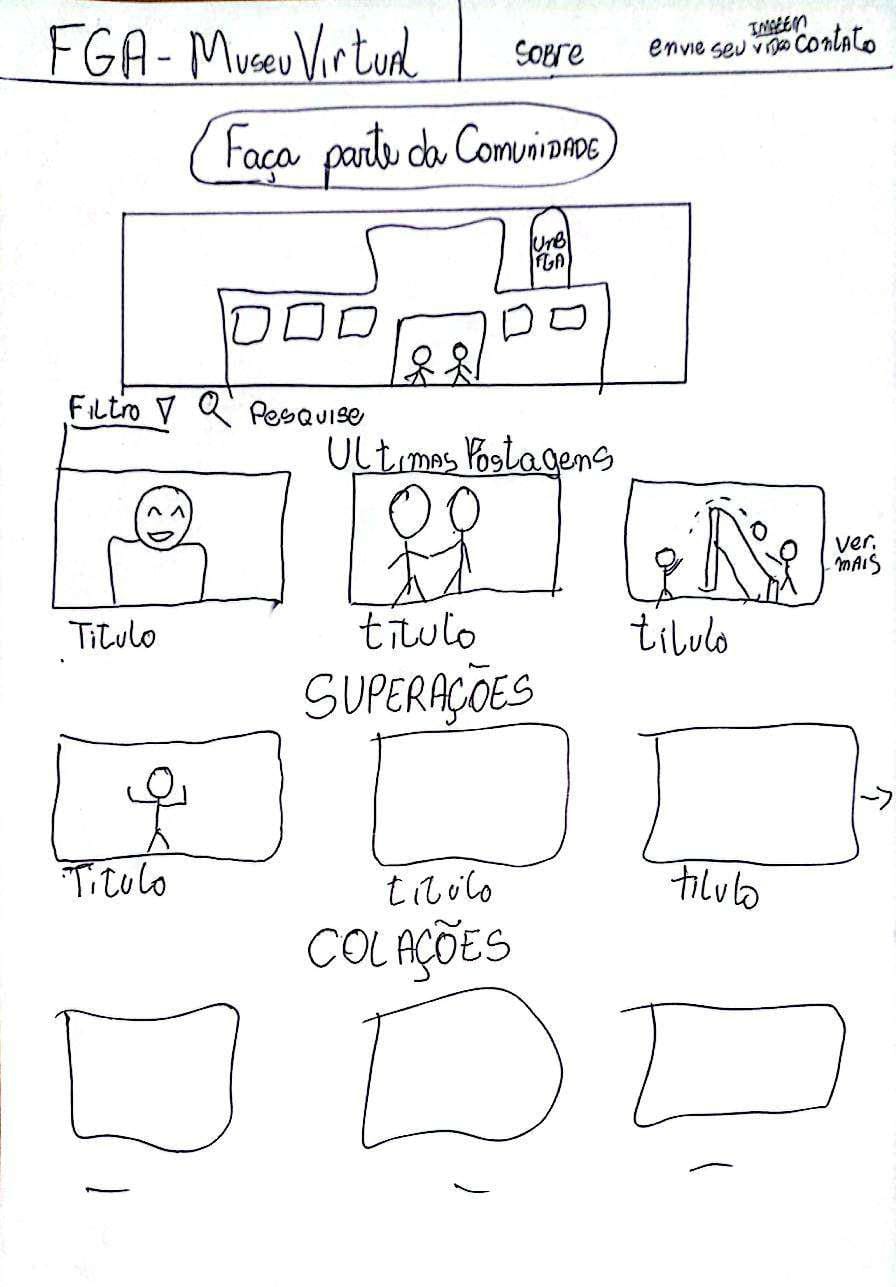 FGA - Museu Virtual
SOBRE
envie seu IMAGEM VIDEO
Contato
Faça parte da Comunidade
UnB
FGA
Filtro
Pesquise
Ultimas Postagens
ver.
mais
Titulo
titulo
titulo
SUPERAÇÕES
Titulo
titulo
titulo
COLAÇÕES